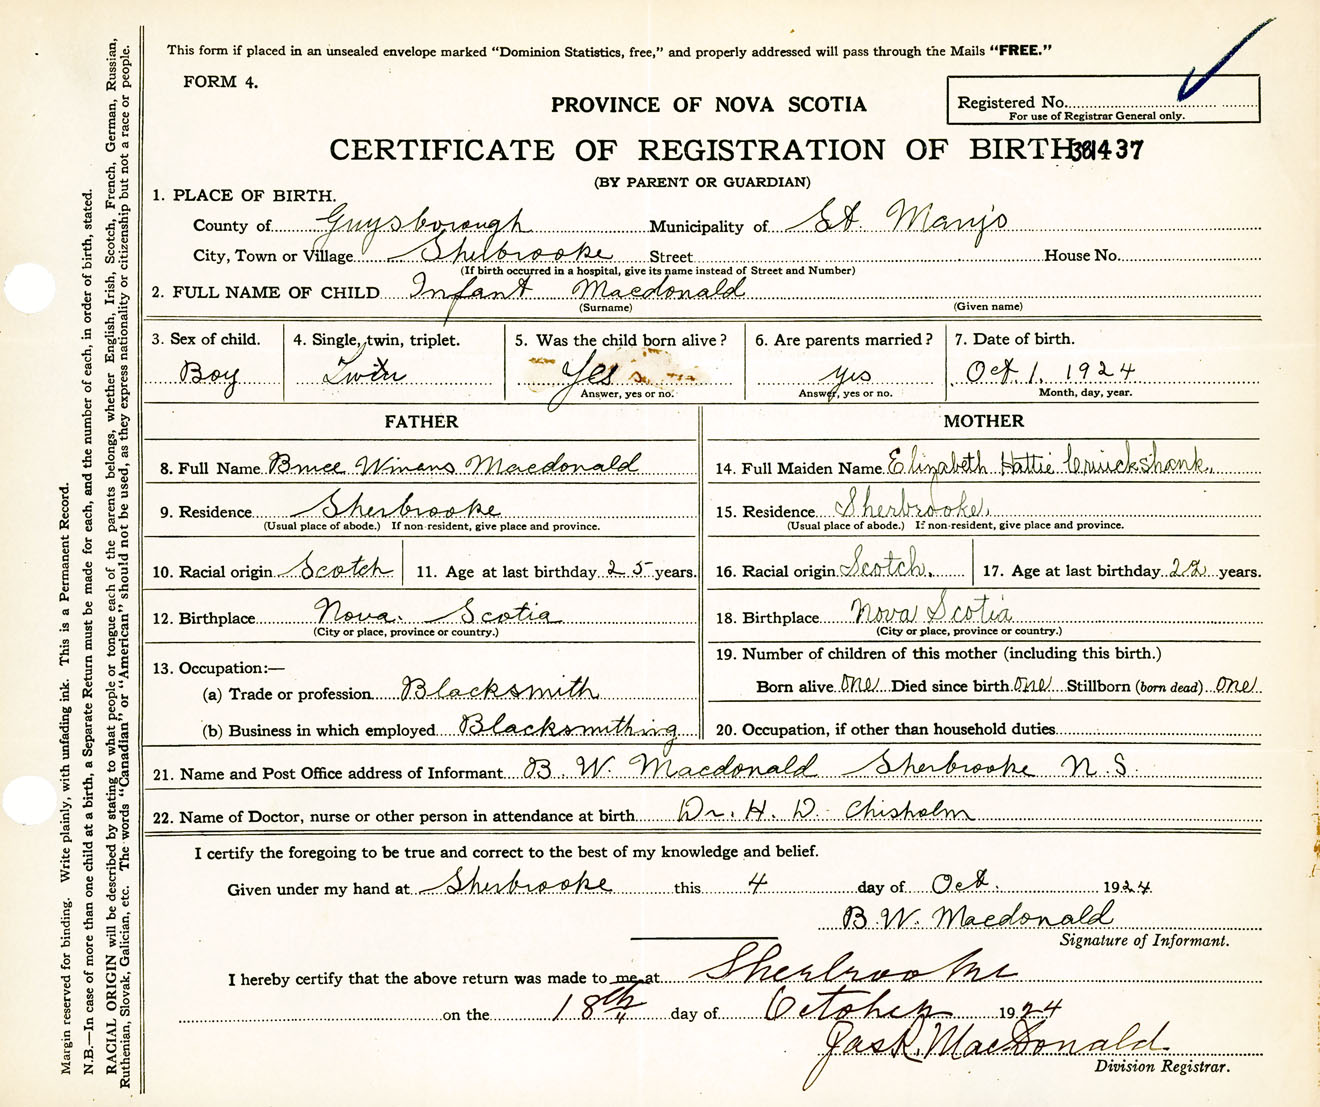 This form if placed in an unsealed envelope marked “Dominion Statistics, free,” and properly addressed will pass through the Mails “FREE.”
FORM 4.
PROVINCE OF NOVA SCOTIA
Registered No.
For use of Registrar General only.
CERTIFICATE OF REGISTRATION OF BIRTH 437
(BY PARENT OR GUARDIAN)
1. PLACE OF BIRTH.
County of Guysborough Municipality of St. Mary's
City, Town or Village Sherbrooke Street House No.
(If birth occurred in a hospital, give its name instead of Street and Number)
2. FULL NAME OF CHILD Infant Macdonald
(Surname) (Given name)
3. Sex of child. 4. Single, twin, triplet. 5. Was the child born alive? 6. Are parents married? 7. Date of birth.
Boy Twin Yes yes Oct. 1. 1924
Answer, yes or no. Answer, yes or no. Month, day, year.
FATHER MOTHER
8. Full Name Bruce Winens Macdonald 14. Full Maiden Name Elizabeth Hattie Cruickshank.
9. Residence Sherbrooke 15. Residence Sherbrooke.
(Usual place of abode.) If non-resident, give place and province. (Usual place of abode.) If non-resident, give place and province.
10. Racial origin Scotch 11. Age at last birthday 25 years. 16. Racial origin Scotch. 17. Age at last birthday 22 years.
12. Birthplace Nova. Scotia 18. Birthplace Nova Scotia
(City or place, province or country.) (City or place, province or country.)
13. Occupation:— 19. Number of children of this mother (including this birth.)
(a) Trade or profession Blacksmith Born alive one Died since birth one Stillborn (born dead) one
(b) Business in which employed Blacksmithing 20. Occupation, if other than household duties
21. Name and Post Office address of Informant B. W. Macdonald Sherbrooke N.S.
22. Name of Doctor, nurse or other person in attendance at birth Dr. H. D. Chisholm
I certify the foregoing to be true and correct to the best of my knowledge and belief.
Given under my hand at Sherbrooke this 4 day of Oct. 1924.
B. W. Macdonald
Signature of Informant.
I hereby certify that the above return was made to me at Sherbrooke
on the 18th day of October 1924
Jas R. MacDonald
Division Registrar.
Margin reserved for binding. Write plainly, with unfading ink. This is a Permanent Record.
N.B.—In case of more than one child at a birth, a Separate Return must be made for each, and the number of each, in order of birth, stated.
RACIAL ORIGIN will be described by stating to what people or tongue each of the parents belongs, whether English, Irish, Scotch, French, German, Russian,
Ruthenian, Slovak, Galician, etc. The words “Canadian” or “American” should not be used, as they express nationality or citizenship but not a race or people.